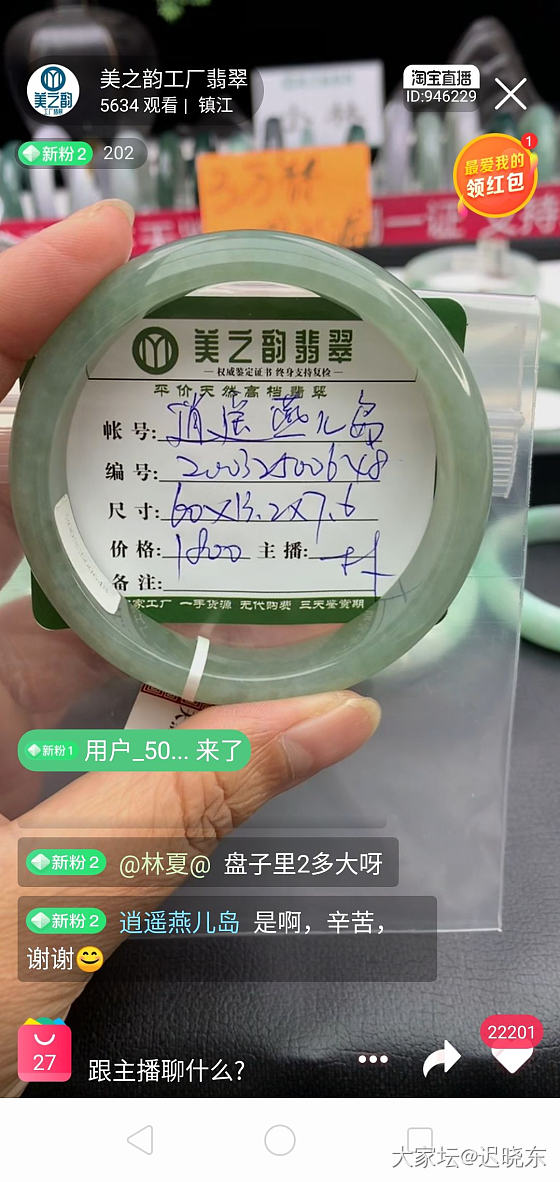 美之韵工厂翡翠
5634 观看 | 镇江
淘宝直播
ID:946229
新粉 2 202
最爱我的
领红包
1
一证 支持
美之韵翡翠
权威鉴定证书 终身支持复检
平价天然高档翡翠
帐号: 逍遥燕儿岛
编号: 20032500648
尺寸: 60X13.2X7.6
价格: 1800 主播:
备注:
家工厂 一手货源 无代购费 三天鉴赏期
新粉 1 用户_50... 来了
新粉 2 @林夏@ 盘子里2多大呀
新粉 2 逍遥燕儿岛 是啊，辛苦，
谢谢😊
27
跟主播聊什么?
22201
大家坛@迟晓东